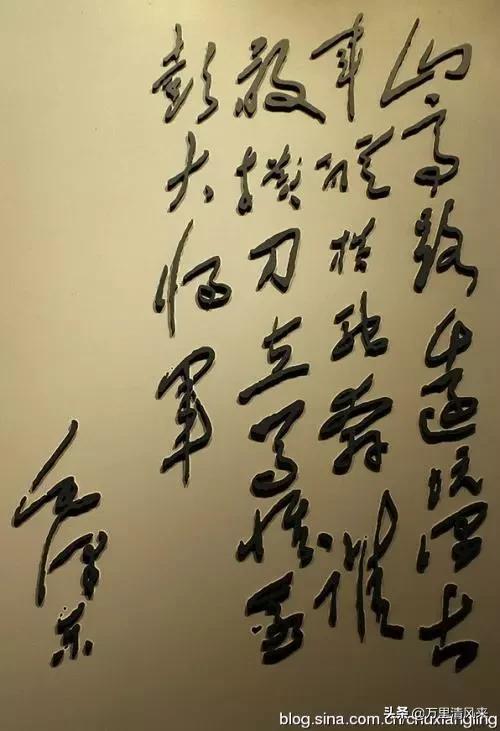 山高路遠坑深大
軍縱横馳奔誰
敢横刀立馬惟我
彭大将軍
毛澤東
头条 @万里清风来
blog.sina.com.cn/chuxiangling